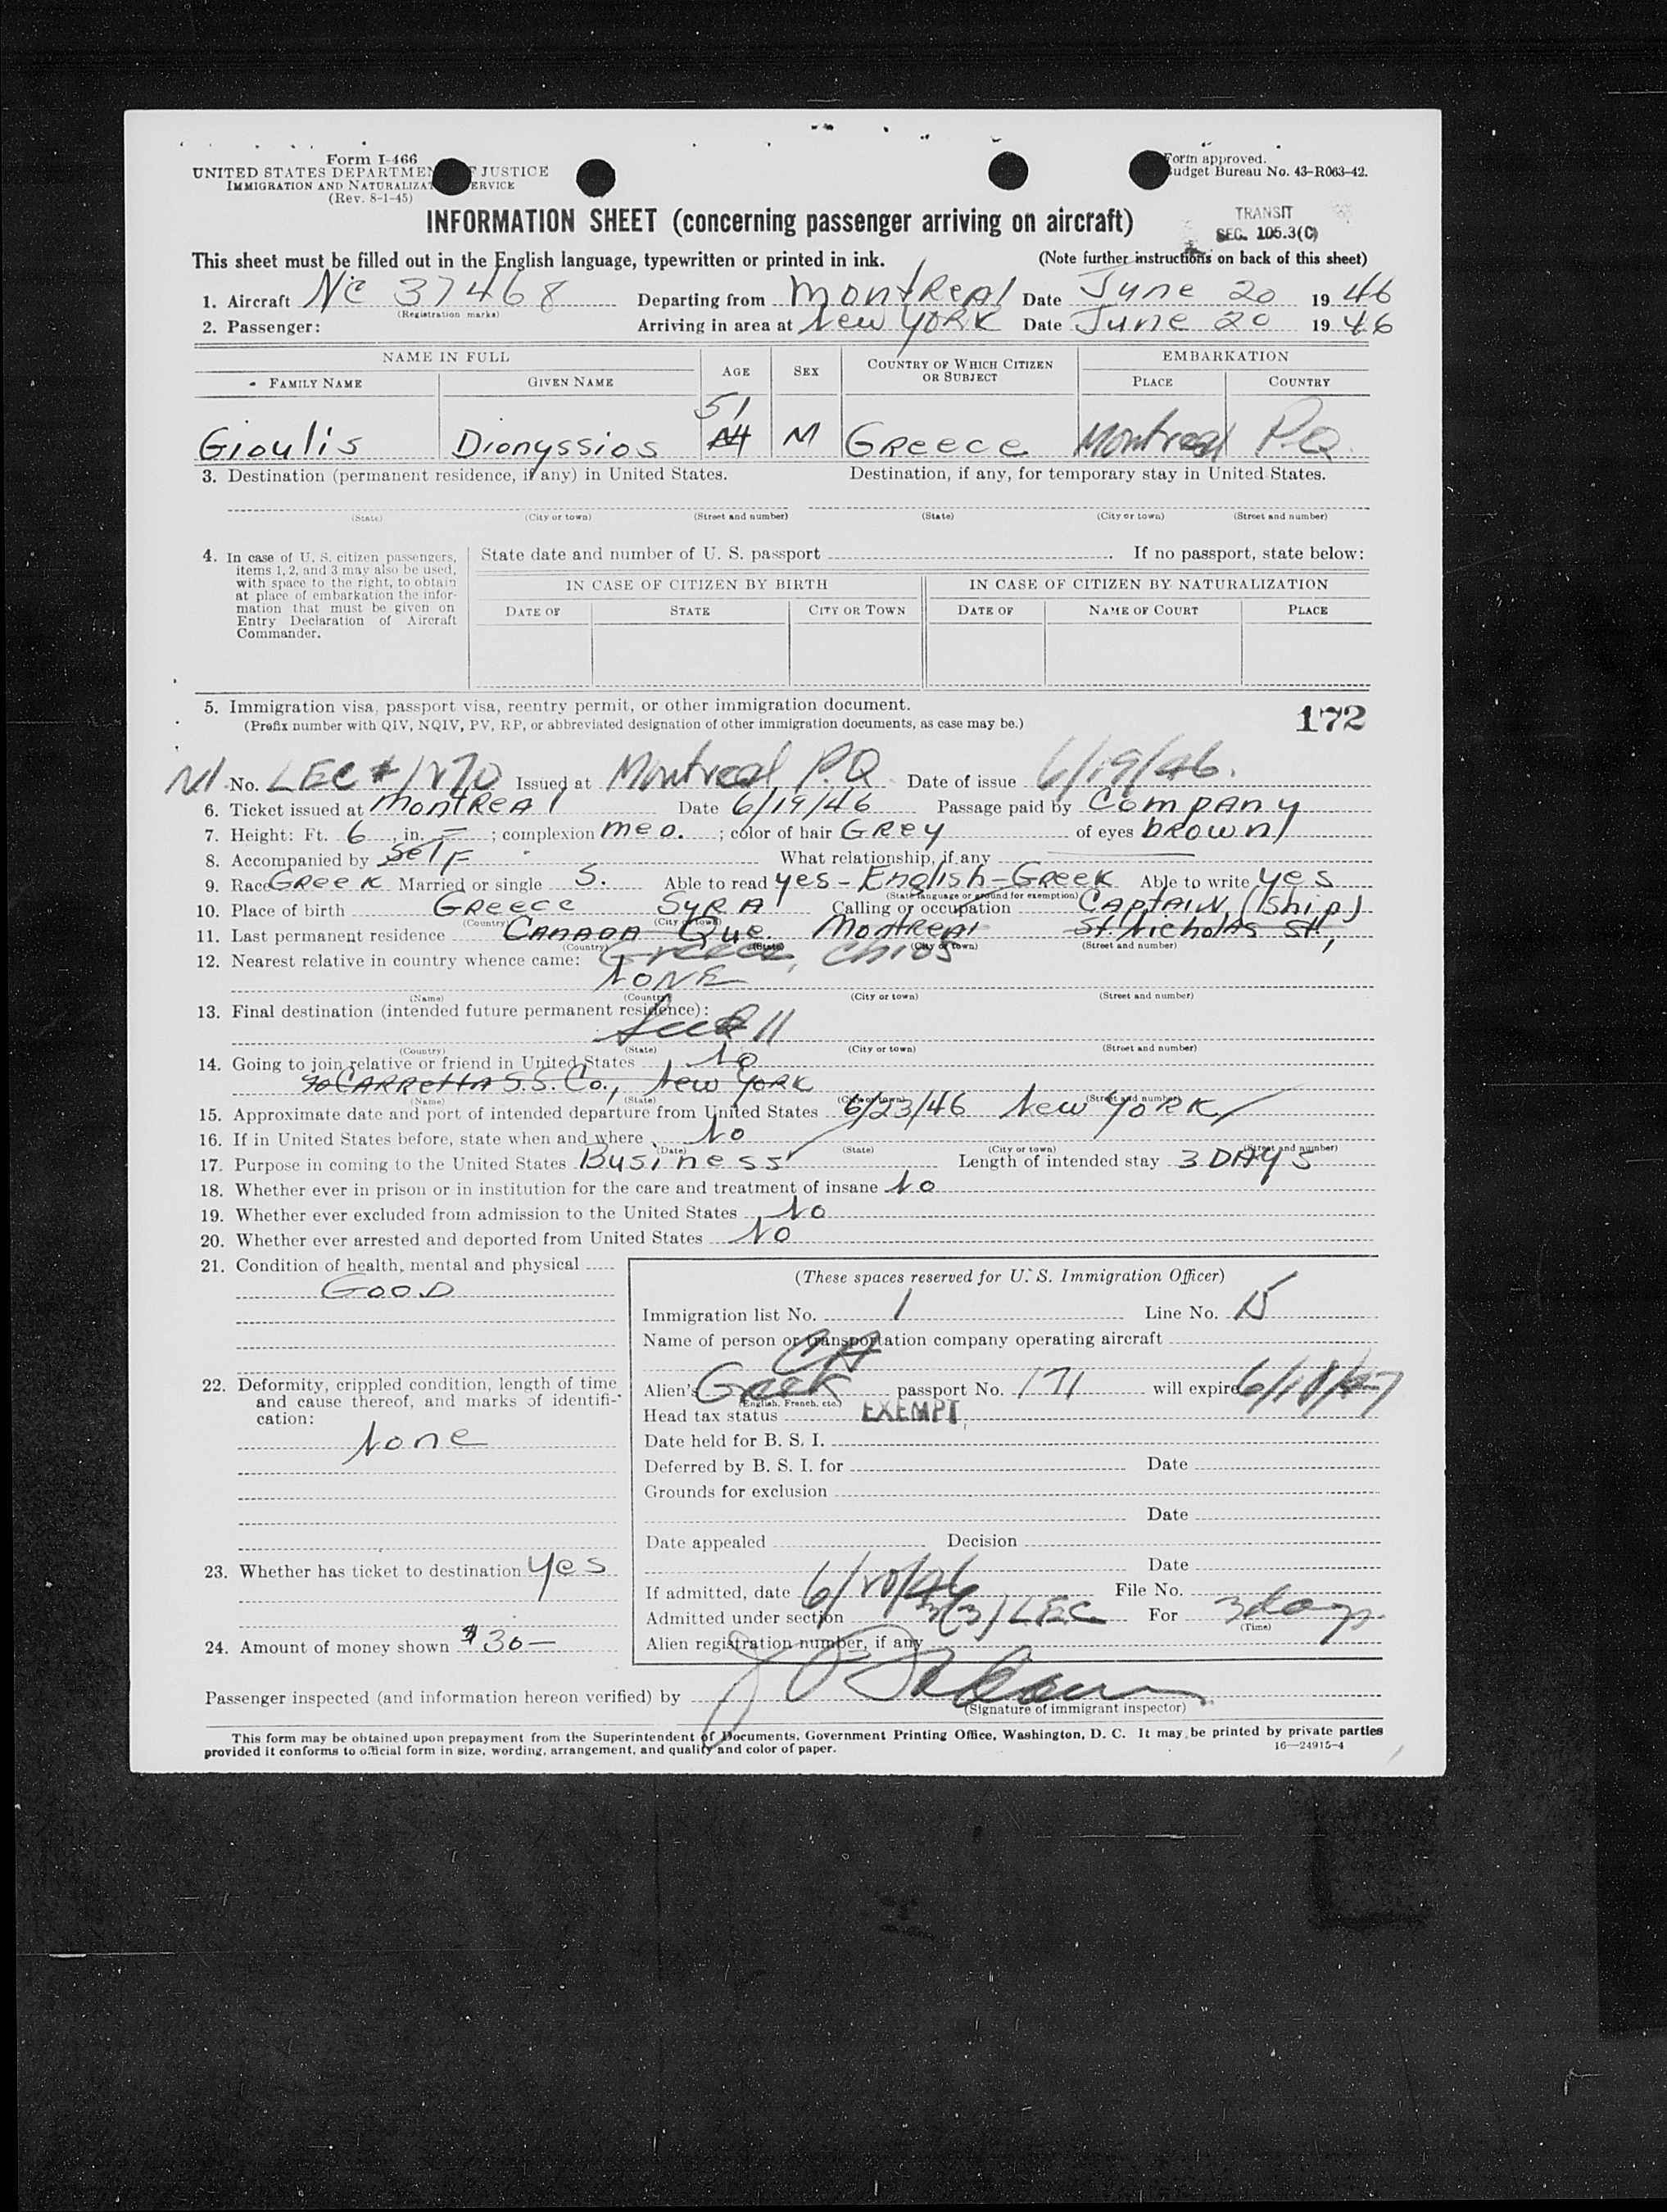 Form I-466
UNITED STATES DEPARTMENT OF JUSTICE
IMMIGRATION AND NATURALIZAT ERVICE
(Rev. 8-1-45)
Form approved.
udget Bureau No. 43-R063-42.
INFORMATION SHEET (concerning passenger arriving on aircraft)
TRANSIT
SEC. 105.3(C)
This sheet must be filled out in the English language, typewritten or printed in ink.
(Note further instructions on back of this sheet)
1. Aircraft NC 37468 Departing from Montreal Date June 20 1946
(Registration marks)
2. Passenger: Arriving in area at New York Date June 20 1946
NAME IN FULL AGE SEX COUNTRY OF WHICH CITIZEN OR SUBJECT EMBARKATION
FAMILY NAME GIVEN NAME PLACE COUNTRY
51
Gioulis Dionyssios M Greece Montreal P.Q.
3. Destination (permanent residence, if any) in United States. Destination, if any, for temporary stay in United States.
(State) (City or town) (Street and number) (State) (City or town) (Street and number)
4. In case of U. S. citizen passengers,
items 1, 2, and 3 may also be used,
with space to the right, to obtain
at place of embarkation the infor-
mation that must be given on
Entry Declaration of Aircraft
Commander.
State date and number of U. S. passport . If no passport, state below:
IN CASE OF CITIZEN BY BIRTH IN CASE OF CITIZEN BY NATURALIZATION
DATE OF STATE CITY OR TOWN DATE OF NAME OF COURT PLACE
5. Immigration visa, passport visa, reentry permit, or other immigration document.
(Prefix number with QIV, NQIV, PV, RP, or abbreviated designation of other immigration documents, as case may be.)
172
No. LEC # 1870 Issued at Montreal P.Q. Date of issue 6/19/46.
6. Ticket issued at Montreal Date 6/19/46 Passage paid by Company
7. Height: Ft. 6, in. = ; complexion Med. ; color of hair Grey of eyes Brown
8. Accompanied by Self What relationship, if any
9. Race Greek Married or single S. Able to read yes - English - Greek Able to write yes
(State language or ground for exemption)
10. Place of birth Greece Syra Calling or occupation Captain (Ship)
(Country) (City or town)
11. Last permanent residence Canada Que. Montreal St. Nicholas St.,
(Country) (State) (City or town) (Street and number)
Greece, Chios
12. Nearest relative in country whence came:
None
(Name) (Country) (City or town) (Street and number)
13. Final destination (intended future permanent residence):
11
(Country) (State) (City or town) (Street and number)
14. Going to join relative or friend in United States No
Carretta S.S. Co., New York
(Name) (State) (City or town) (Street and number)
15. Approximate date and port of intended departure from United States 6/23/46 New York
16. If in United States before, state when and where No
(Date) (State) (City or town) (Street and number)
17. Purpose in coming to the United States Business Length of intended stay 3 Days
18. Whether ever in prison or in institution for the care and treatment of insane No
19. Whether ever excluded from admission to the United States No
20. Whether ever arrested and deported from United States No
21. Condition of health, mental and physical
Good
22. Deformity, crippled condition, length of time
and cause thereof, and marks of identifi-
cation:
None
23. Whether has ticket to destination Yes
24. Amount of money shown $30—
(These spaces reserved for U. S. Immigration Officer)
Immigration list No. 1 Line No. 15
Name of person or transportation company operating aircraft
Alien's Greek passport No. 171 will expire 6/18/47
(English, French, etc.)
Head tax status EXEMPT
Date held for B. S. I.
Deferred by B. S. I. for Date
Grounds for exclusion
Date
Date appealed Decision
Date
If admitted, date 6/20/46 File No.
Admitted under section 3(3) LEC For 3 days
(Time)
Alien registration number, if any
Passenger inspected (and information hereon verified) by
(Signature of immigrant inspector)
This form may be obtained upon prepayment from the Superintendent of Documents, Government Printing Office, Washington, D. C. It may be printed by private parties
provided it conforms to official form in size, wording, arrangement, and quality and color of paper.
16—24915-4